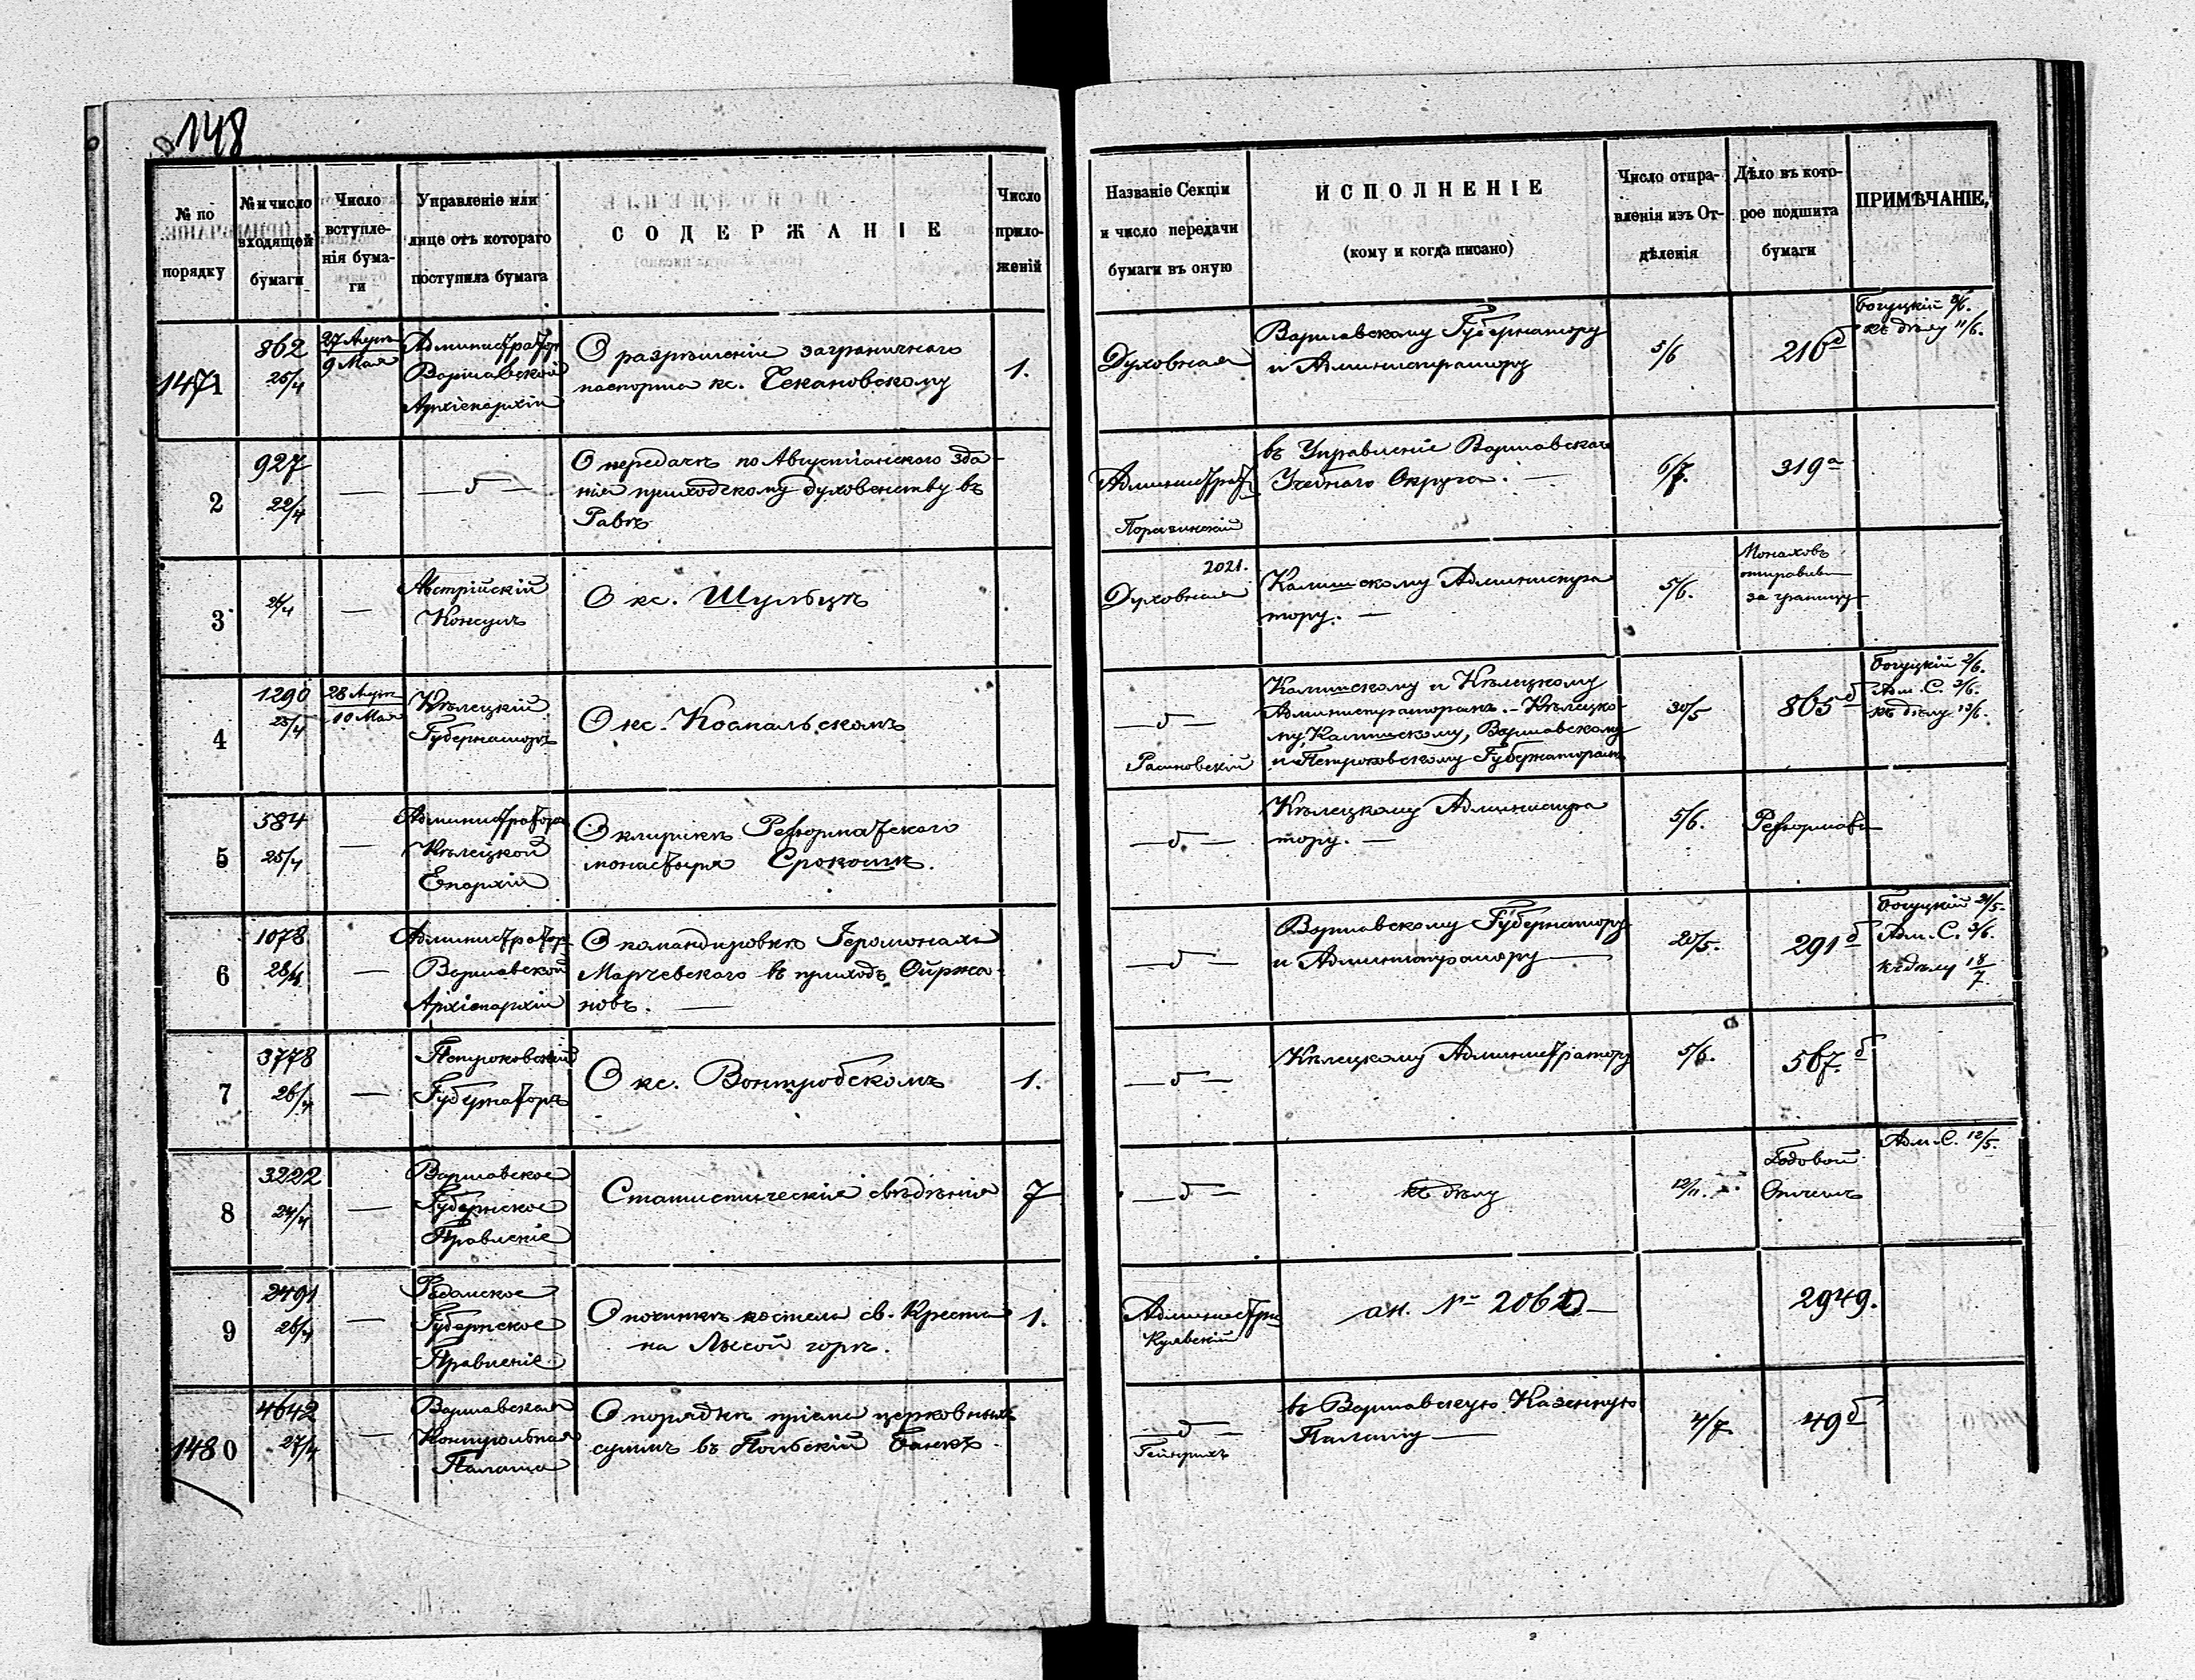 148
№ по порядку
№ и число входящей бумаги
Число вступле-нія бума-ги
Управленіе или лице отъ котораго поступила бумага
СОДЕРЖАНІЕ
Число прило-женій
Названіе Секціи и число передачи бумаги въ оную
ИСПОЛНЕНІЕ
(кому и когда писано)
Число отпра-вленія изъ От-дѣленія
Дѣло въ кото-рое подшита бумаги
ПРИМѢЧАНІЕ,
1471
862
25/4
27 Апрѣ
9 Мая
Администратор
Варшавской
Архіепархіи
О разрѣшеніи заграничнаго
паспорта кс. Чекановскому
1.
Духовная
Варшавскому Губернатору
и Администратору
5/6
216 б
Богуцкій
къ дѣлу 11/6.
2
927
22/4
—
— б —
О передачѣ по Августіанскаго зда-
нія приходскому духовенству въ
Равѣ
Администрат
въ Управленіе Варшавскаго
Учебнаго Округа. —
6/7.
319 а
3
26/4
—
Австрійскій
Консулъ
О кс. Шульцѣ
2021.
Духовная
Калишскому Администра
тору. —
5/6.
Монаховъ
отправив
за границу
4
1290
25/4
28 Апрѣ
10 Мая
Кѣлецкій
Губернаторъ
О кс. Коспальскомъ
— б —
Калишскому и Кѣлецкому
Администраторамъ. - Кѣлецко-
му, Калишскому, Варшавскому
и Петроковскому Губернаторам
30/5
865 б
Богуцкій 2/6.
Адм. С. 3/6.
къ дѣлу 13/6.
5
584
25/4
—
Администратора
Кѣлецкой
Епархіи
О клирикѣ Реформатскаго
монастыря Срокошѣ.
— б. —
Кѣлецкому Администра
тору. —
5/6.
Реформаты
6
1078
28/4
—
Администратор
Варшавской
Архіепархіи
О командировкѣ Іеромонаха
Марчевскаго въ приходъ Ойржа-
новъ. —
— б —
Варшавскому Губернатору
и Администратору —
20/5.
291 б
Богуцкій 31/5.
Адм. С. 3/6.
къ дѣлу 18/7.
7
3778
26/4
—
Петроковскій
Губернаторъ
О кс. Вонтробскомъ
1.
— б —
Кѣлецкому Администратору
5/6.
567. б
8
3222
24/4
—
Варшавское
Губернское
Правленіе
Статистическія свѣдѣнія
7
— б —
къ дѣлу
12/11.
Годовой
Отчетъ
Адм. С. 12/5.
9
2491
26/4
—
Радомское
Губернское
Правленіе
О починкѣ костела св. Креста
на Лысой горѣ.
1.
Администра
ан. № 2062
2949.
1480
4642
27/4
—
Варшавская
Контрольная
Палата
О порядкѣ пріема церковныхъ
суммъ въ Польскій Банкъ.
— б —
Гейнрихъ
въ Варшавскую Казенную
Палату —
4/7
49 б